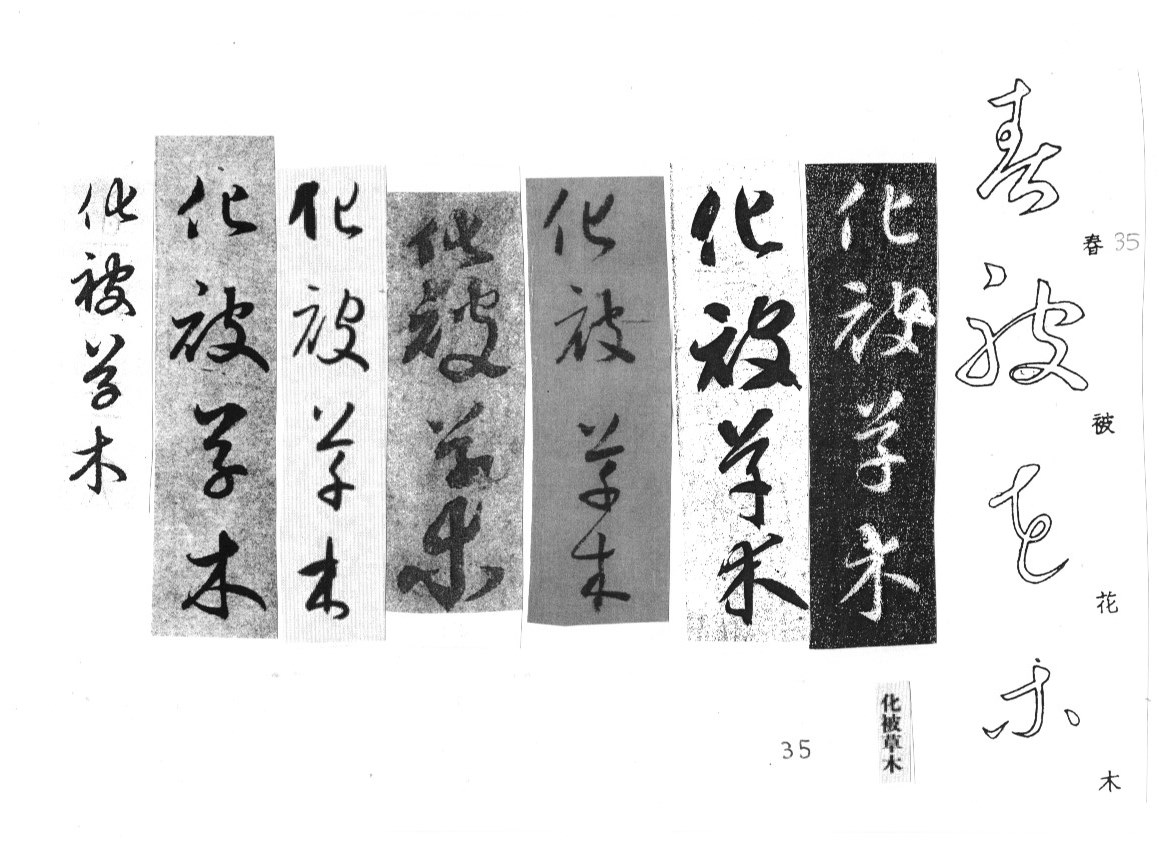 春被花木
春 35
被
花
木
化被草木
化被草木
化被草木
化被草木
化被草木
化被草木
化被草木
化被草木
35